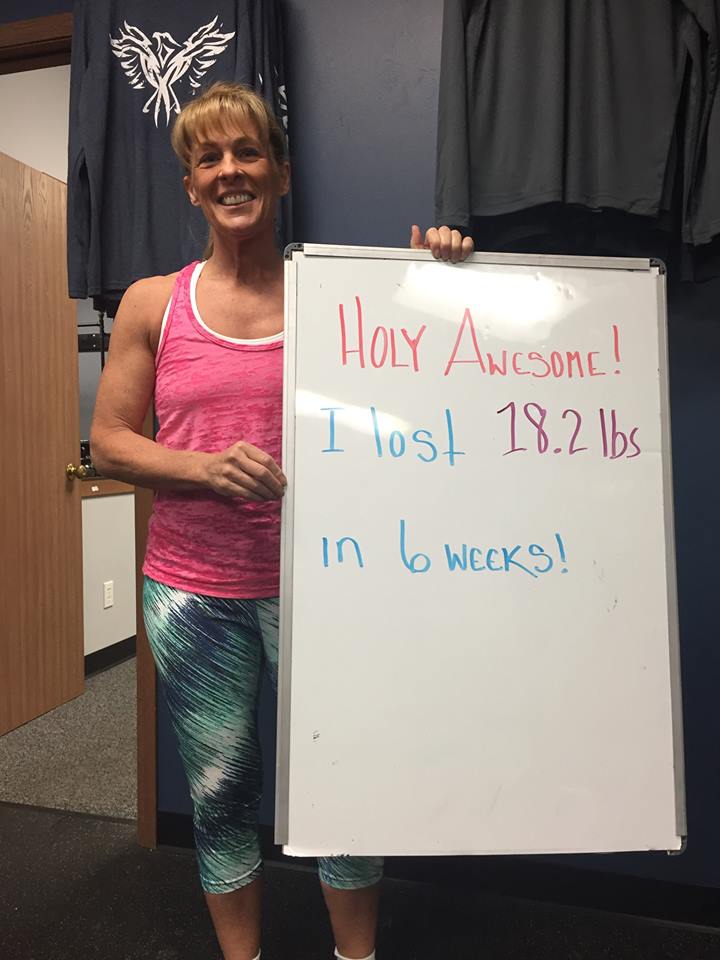 HOLY AWESOME!
I lost 18.2 lbs
in 6 WEEKS!